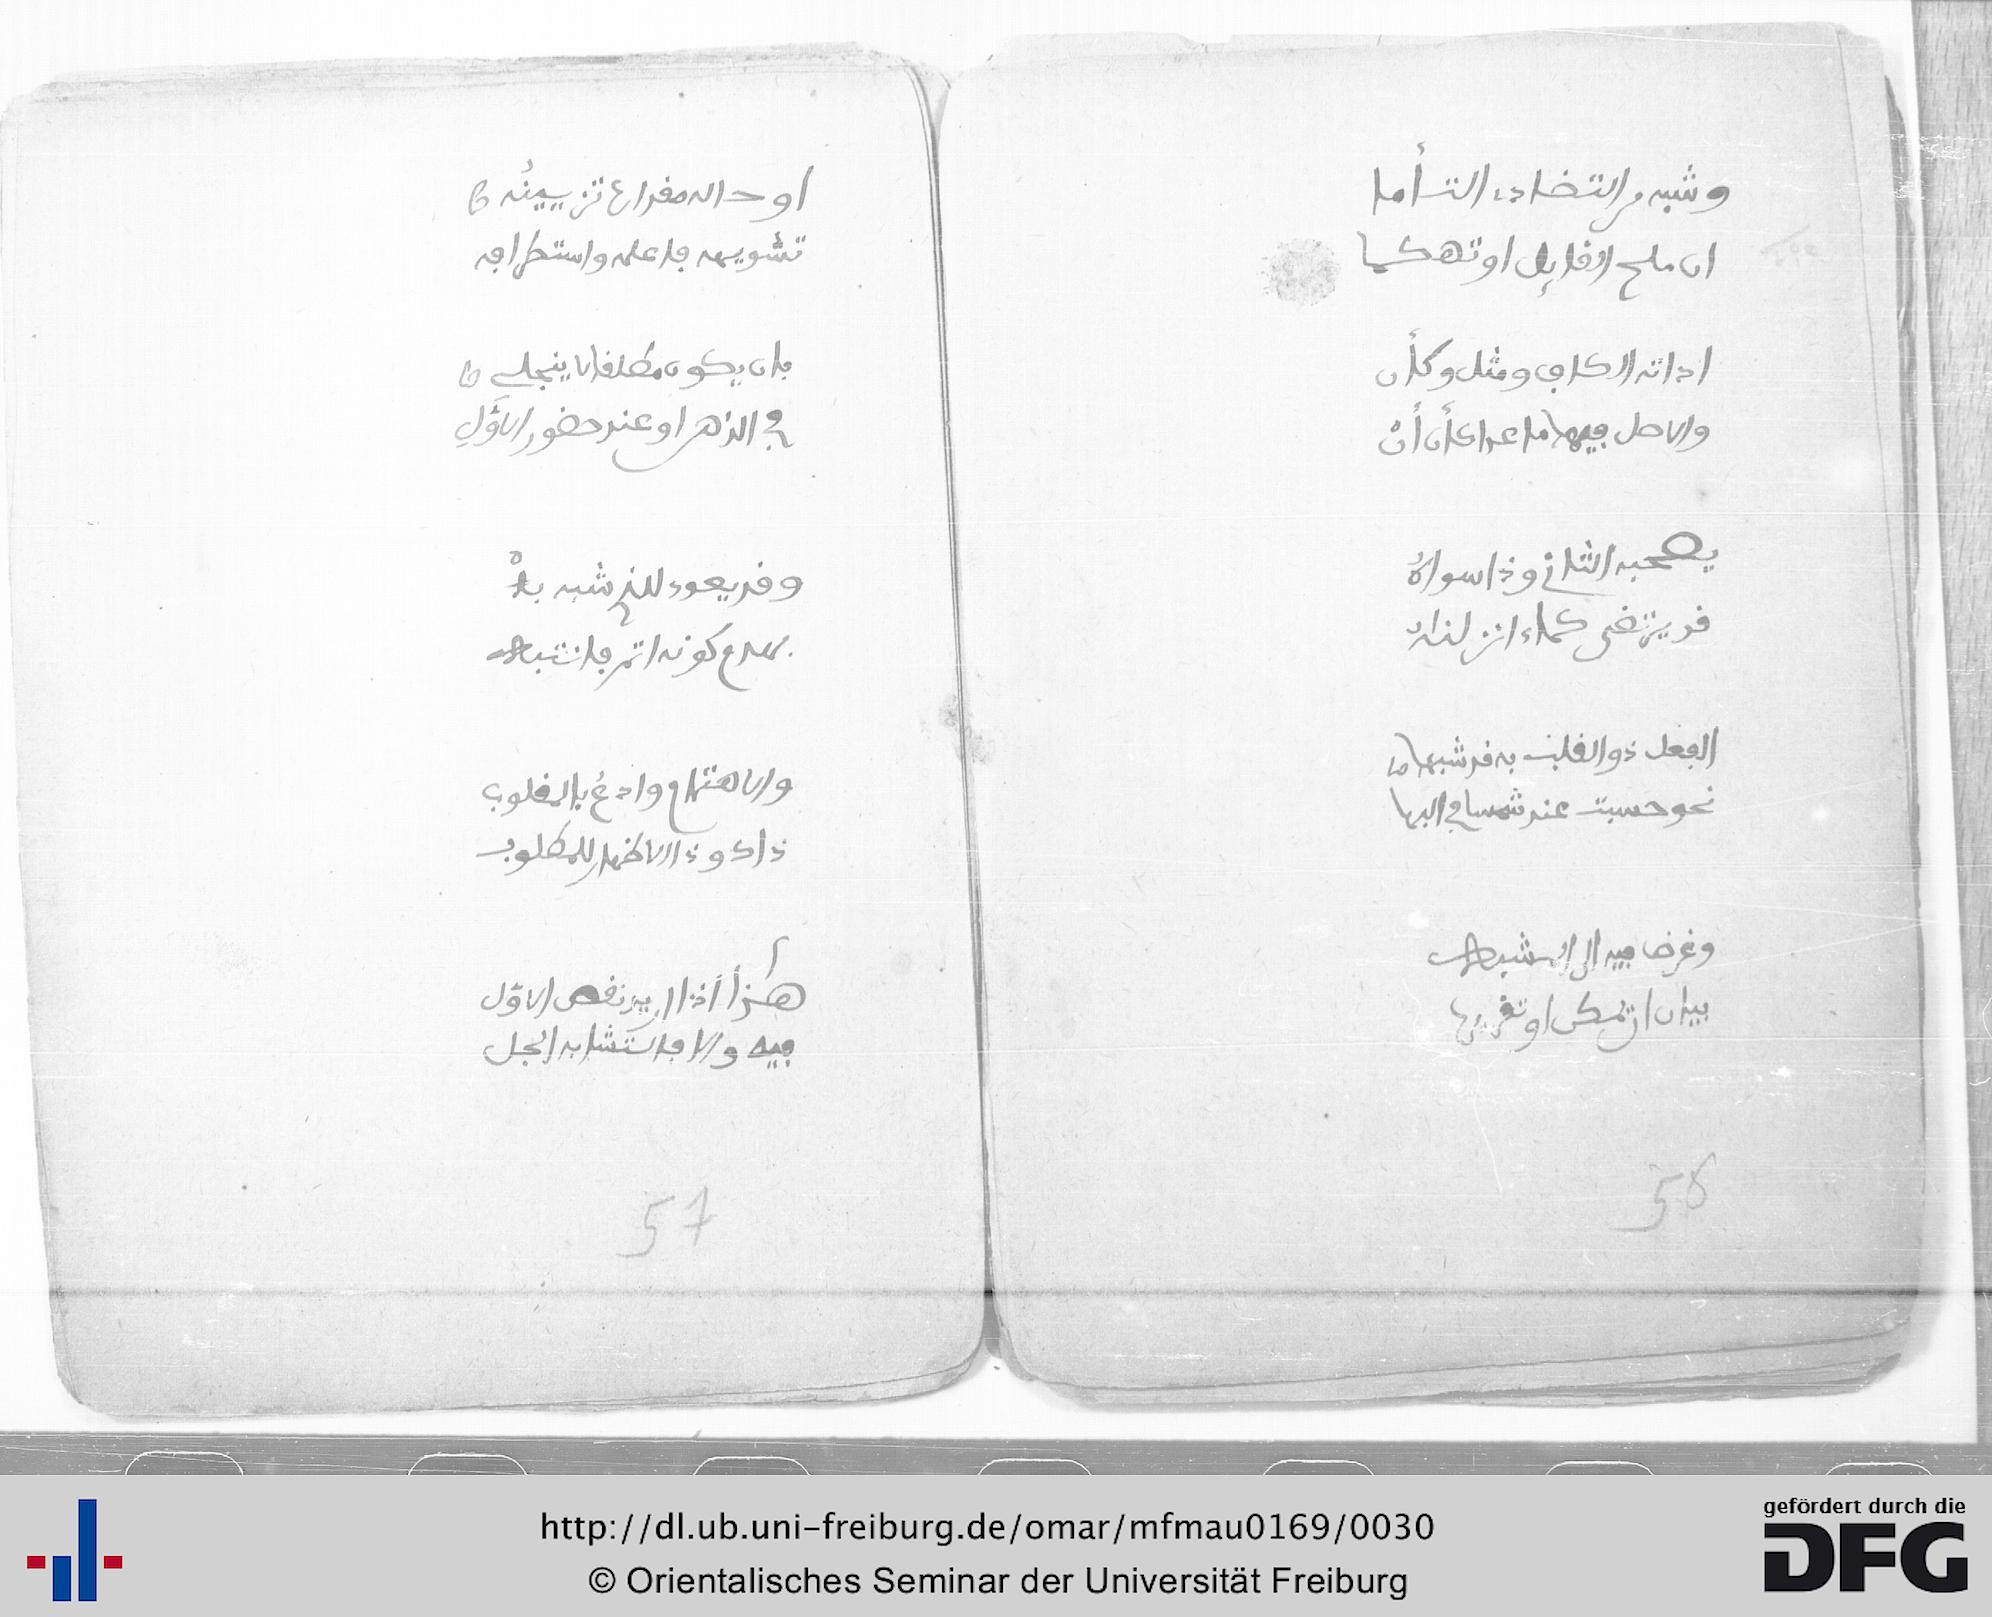 وشبه من التضاد التسأما
ان ملح القايل او تهكما
اداته الكاف ومثل وكأن
والاصل فيها ما عدا كأن أن
يصحبه الثاني وذا سواه
قد يرتضى كماء انزلناه
الفعل ذو القلب به قد شبها
نحو حسبت عند شمسا في البها
وغرضا فيه الى المشبه
بيان ان تمكن او تقريرها
58
او حاله مقدارا تزيينه
تشويهه فاعلمه واستطرافه
بان يكون مطلقا لا ينجلي
في الذهن او عند حضور الاول
وقد يعود للذي شبه به
بهدم كونه اتم فانتبه
والاهتمام وادع بالمقلوب
ذاك وذا الاظهار للمطلوب
هذا اذا اريد نقص الاول
فيه والا فالتشابه الجل
57
http://dl.ub.uni-freiburg.de/omar/mfmau0169/0030
© Orientalisches Seminar der Universität Freiburg
gefördert durch die
DFG